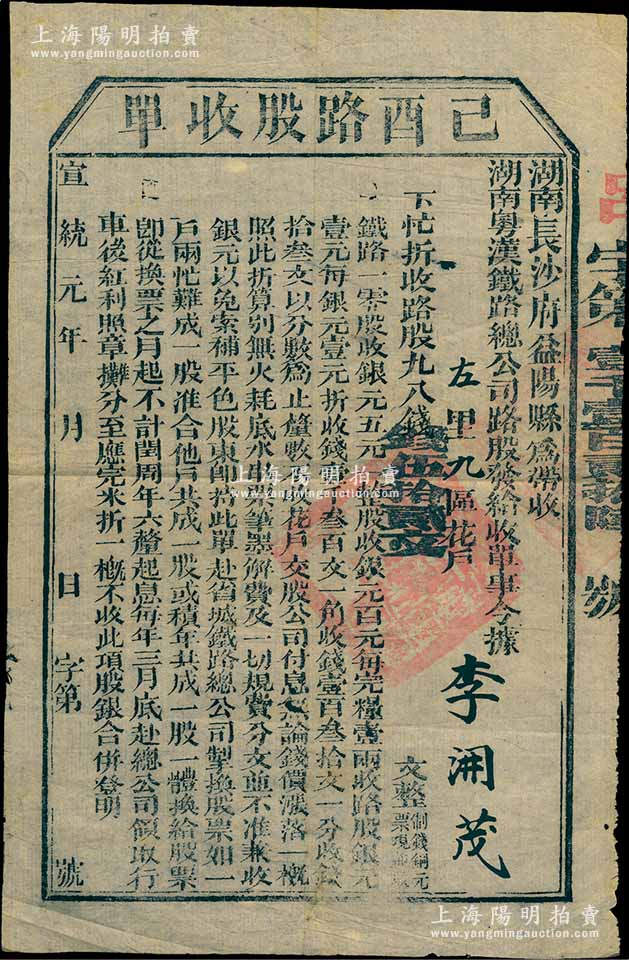 上海陽明拍賣
www.yangmingauction.com
己酉路股收單
字第壹千壹百貳拾陸號
湖南長沙府益陽縣為帶收
湖南粵漢鐵路總公司路股發給收單事今據
左里九區花戶 李開茂
下忙折收路股九八錢 錢伍拾貳文 文整 制錢銅元
鐵路一零股收銀元五元 整股收銀元百元每完糧壹兩收路股銀元
壹元每銀元壹元折收錢壹千叁百文一角收錢壹百叁拾文一分收錢
拾叁文以分數為止釐數 花戶交股公司付息無論錢價漲落一概
照此折算別無火耗底水串票筆墨解費及一切規費分文並不准兼收
銀元以免索補平色股東即持此單赴省城鐵路總公司掣換股票如一
戶兩忙難成一股准合他戶共成一股或積年共成一股一體換給股票
即從換票之月起不計閏周年六釐起息每年三月底赴總公司領取行
車後紅利照章攤分至應完米折一概不收此項股銀合併登明
宣統元年 月 日 字第 號
上海陽明拍賣
www.yangmingauction.com
上海陽明拍賣
www.yangmingauction.com